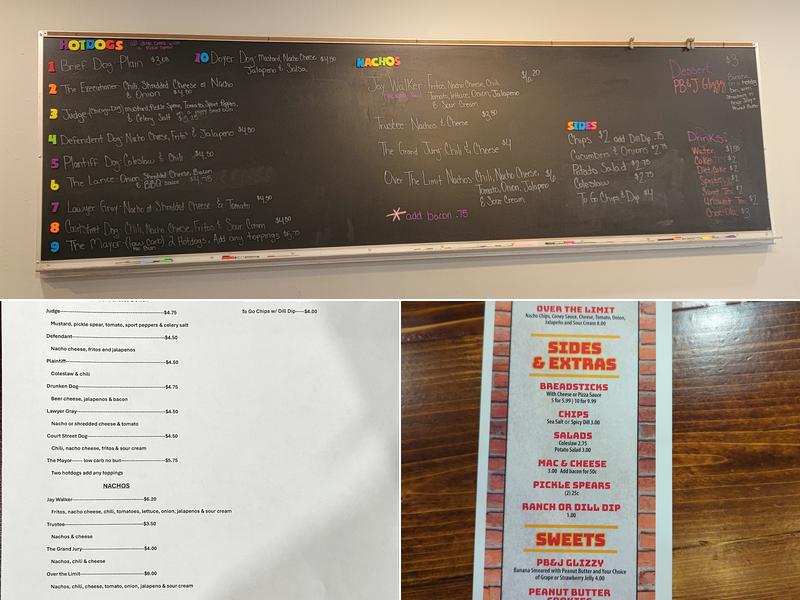 HOTDOGS
1 Brief Dog Plain $3.00
2 The Executioner- Chili, Shredded Cheese or Nacho
& Onion $4.50
3 Judge (Chicago Dog) Mustard, Pickle Spear, Tomato, Sport Peppers,
& Celery Salt
4 Defendent Dog- Nacho Cheese, Fritos & Jalapeno $4.50
5 Plaintiff Dog- Coleslaw & Chili $4.50
6 The Lance- Onion, Shredded Cheese, Bacon
& BBQ sauce $4.75
7 Lawyer Gray- Nacho or Shredded Cheese & Tomato $4.50
8 Court Street Dog- Chili, Nacho Cheese, Fritos & Sour Cream $4.50
9 The Mayor- (low carb) 2 Hotdogs, Add any toppings $5.75
no bun
10 Doyer Dog- Mustard, Nacho Cheese, $4.50
Jalapeno & Salsa
NACHOS
Jay Walker- Fritos, Nacho Cheese, Chili, $6.20
Tomato, lettuce, Onion, Jalapeno
& Sour Cream
Trustee- Nachos & Cheese
The Grand Jury- Chili & Cheese $4
Over The Limit- Nachos, Chili, Nacho Cheese, $6
Tomato, Onion, Jalapeno
& Sour Cream
* add bacon .75
SIDES
Chips $2 add Dill Dip .75
Cucumbers & Onions $2.75
Potato Salad $2.75
Coleslaw $2.75
To Go Chips & Dip $4
Dessert $3
PB&J Glizzy
Drinks:
Water $1.50
Coke $2
Diet Coke $2
Sprite $2
Sweet Tea $2
Unsweet Tea $2
Judge----$4.75
Mustard, pickle spear, tomato, sport peppers & celery salt
Defendant----$4.50
Nacho cheese, fritos and jalapenos
Plaintiff----$4.50
Coleslaw & chili
Drunken Dog----$4.75
Beer cheese, jalapenos & bacon
Lawyer Gray----$4.50
Nacho or shredded cheese & tomato
Court Street Dog----$4.50
Chili, nacho cheese, fritos & sour cream
The Mayor----- low carb no bun----$5.75
Two hotdogs add any toppings
NACHOS
Jay Walker----$6.20
Fritos, nacho cheese, chili, tomatoes, lettuce, onion, jalapenos & sour cream
Trustee----$3.50
Nachos & cheese
The Grand Jury----$4.00
Nachos, chili & cheese
Over the Limit----$6.00
Nachos, chili, cheese, tomato, onion, jalapeno & sour cream
To Go Chips w/ Dill Dip----$4.00
OVER THE LIMIT
Nacho Chips, Coney Sauce, Cheese, Tomato, Onion,
Jalapeño and Sour Cream 8.00
SIDES
& EXTRAS
BREADSTICKS
With Cheese or Pizza Sauce
5 for 5.99 | 10 for 9.99
CHIPS
Sea Salt or Spicy Dill 3.00
SALADS
Coleslaw 2.75
Potato Salad 3.00
MAC & CHEESE
3.00 Add bacon for 50c
PICKLE SPEARS
(2) 25c
RANCH OR DILL DIP
1.00
SWEETS
PB&J GLIZZY
Banana Smeared with Peanut Butter and Your Choice
of Grape or Strawberry Jelly 4.00
PEANUT BUTTER